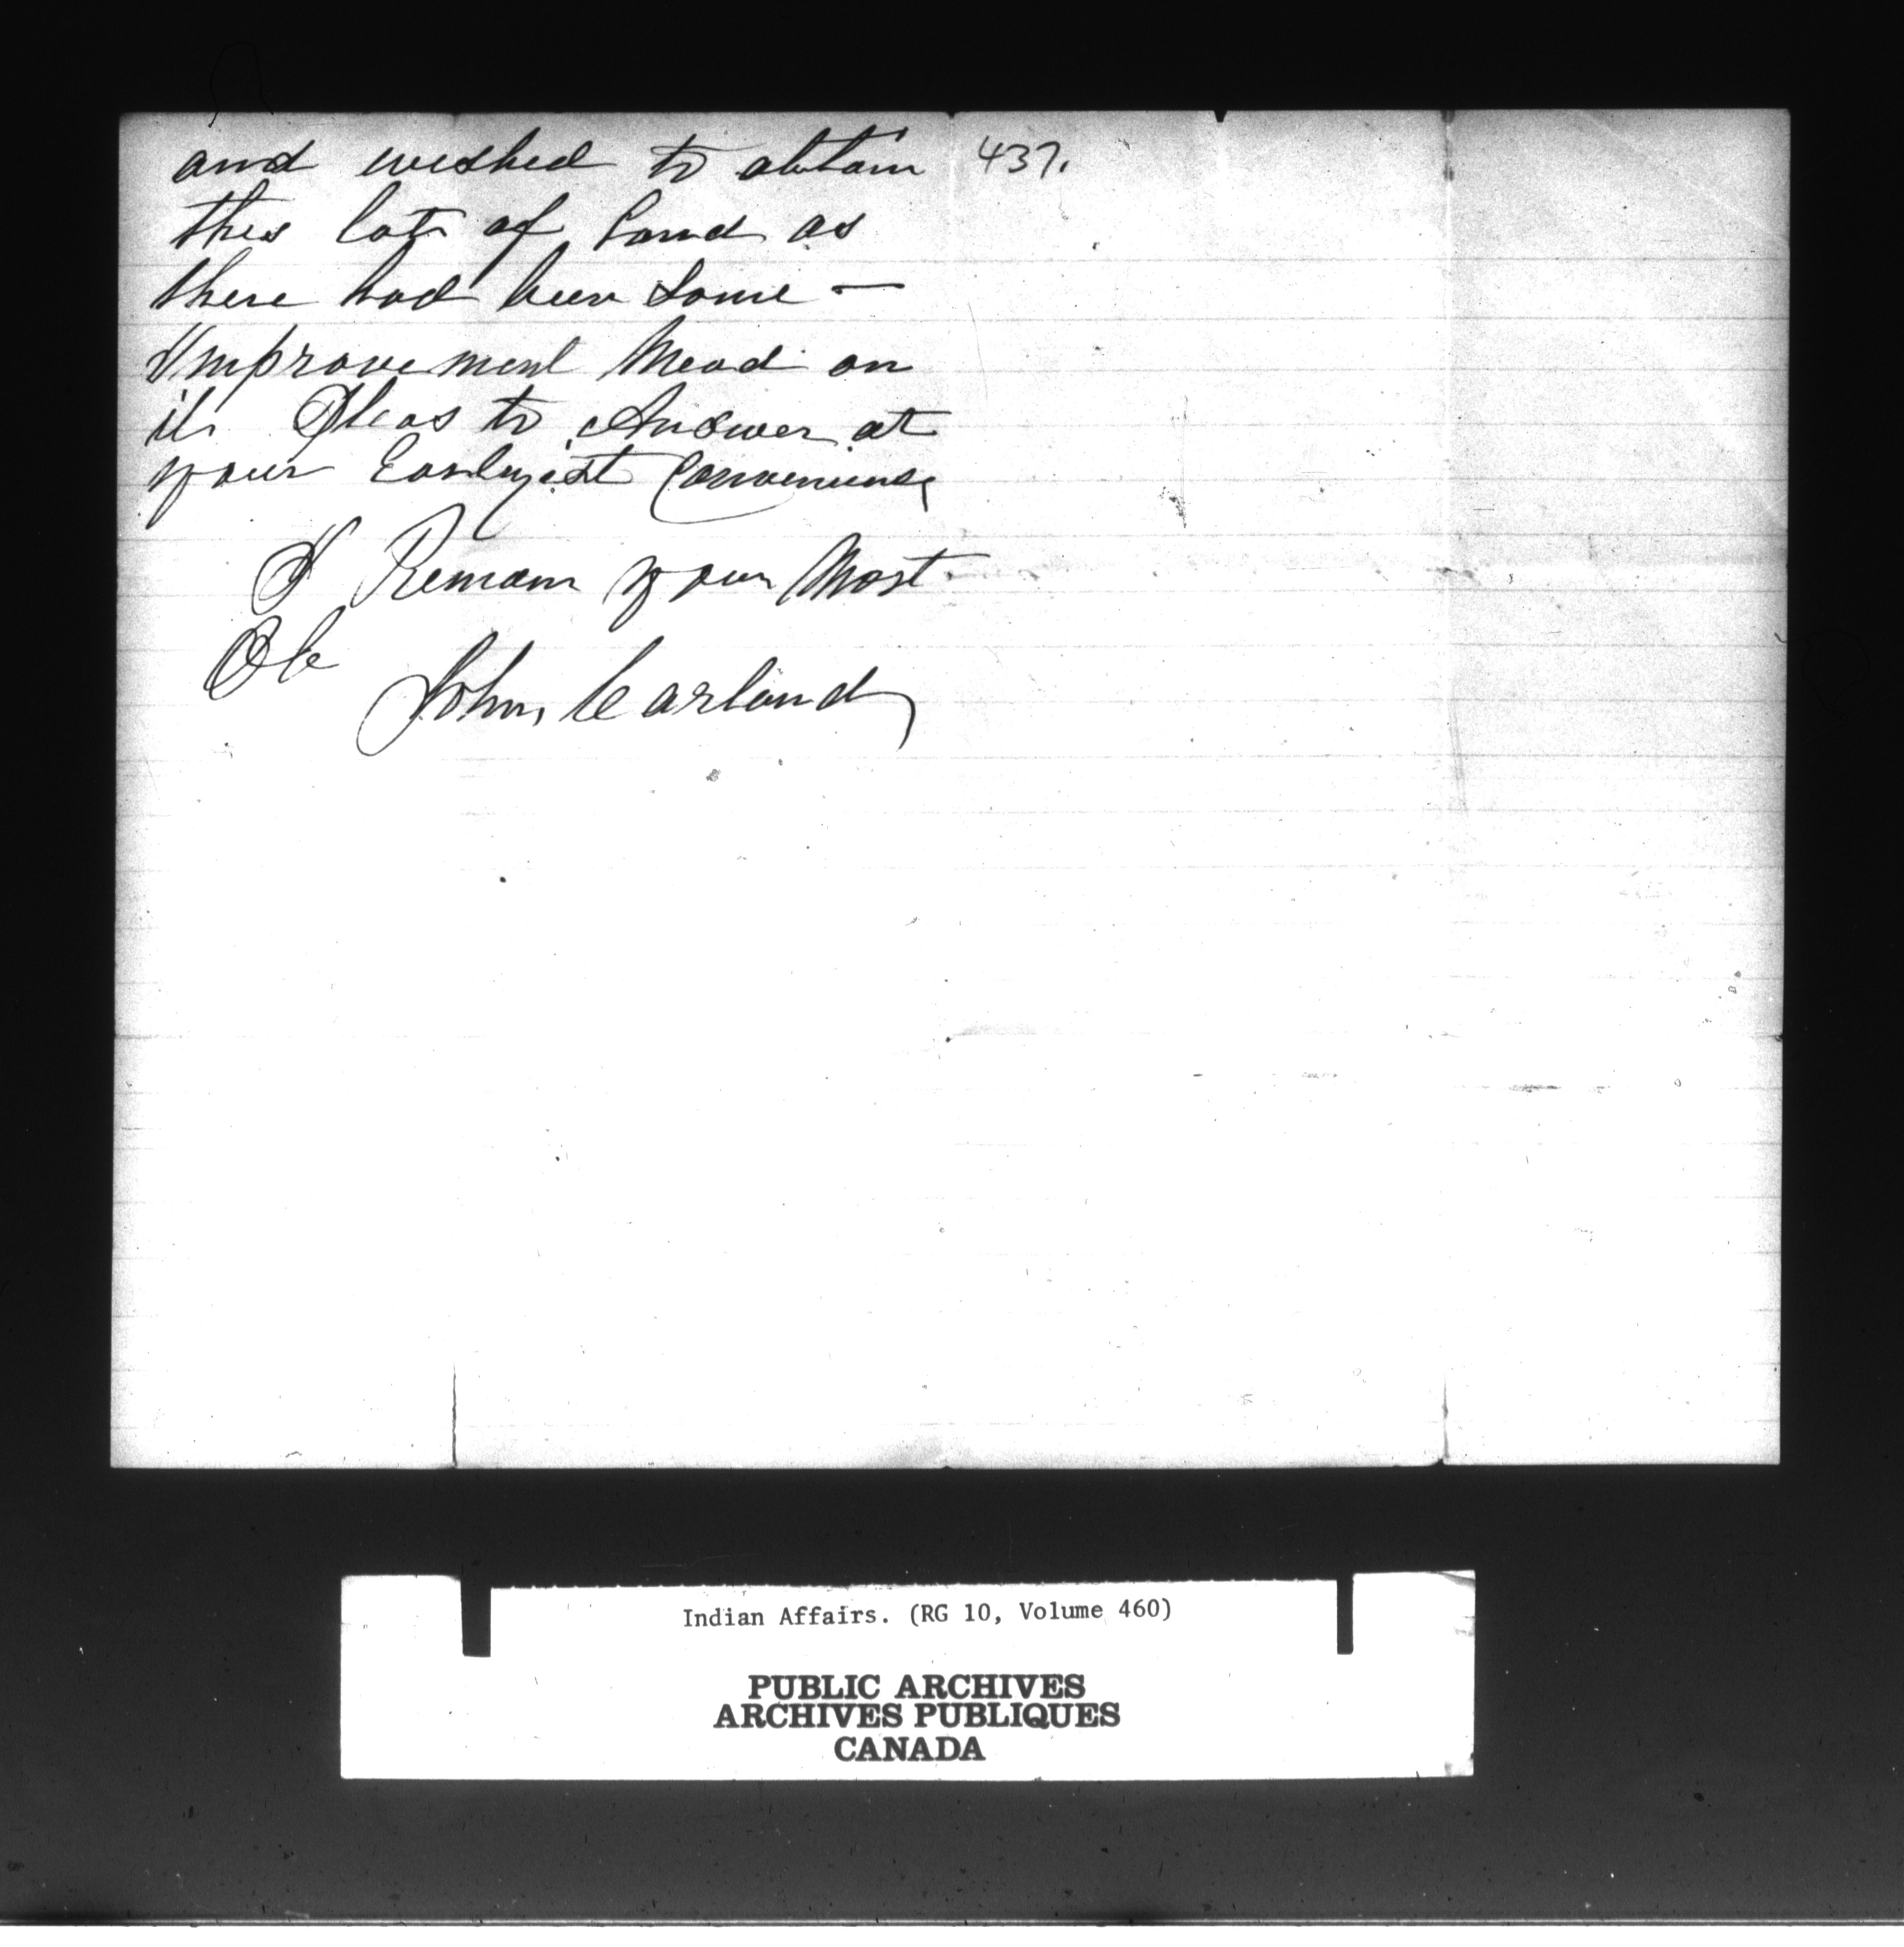 and wished to obtain 437.
this lot of Land as
there had been Some —
Improvement Mead on
it. Pleas to Answer at
your Earlyist Conveniense
I Remain your Most
Ob
John Carland
Indian Affairs. (RG 10, Volume 460)
PUBLIC ARCHIVES
ARCHIVES PUBLIQUES
CANADA